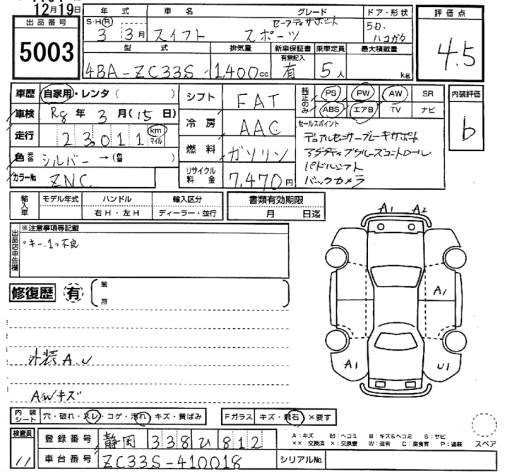 12月19日
出品番号
5003
年式 車名 グレード ドア・形状
S・H・R 3年 3月 スイフト セーフティサポート スポーツ 5D. ハコガタ
型式 排気量 新車保証書 有無記入 乗車定員 最大積載量
4BA-ZC33S 1400cc 有 5人 kg
評価点
4.5
車歴 自家用・レンタ( )
車検 R8年 3月(15日)
走行 23011 km マイル
色 シルバー→(色替)
カラーNo ZNC
シフト FAT
冷房 AAC
燃料 ガソリン
リサイクル料金 7,470円
PS PW AW SR
ABS エアB TV ナビ
セールスポイント
デュアルセンサーブレーキサポート
アダプティブクルーズコントロール
パドルシフト
バックカメラ
内装評価
b
輸入車 モデル年式 ハンドル 輸入区分
右H・左H ディーラー・並行
書類有効期限
月 日迄
出品店申告欄
※注意事項等記載
°キー1ヶ不良
修復歴 有 箇所
外装A.U
AWキズ
A1 A2
A1
A1 U1
内装シート 穴・破れ・スレ・コゲ・汚れ・キズ・黄ばみ
Fガラス キズ・飛石・×要す
スペア
検査員 11
登録番号 静岡 338 ひ 812
車台番号 ZC33S-410018
シリアルNo.